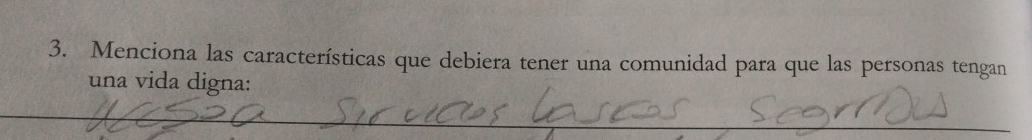 3. Menciona las características que debiera tener una comunidad para que las personas tengan
una vida digna:
Sirvicios bascos